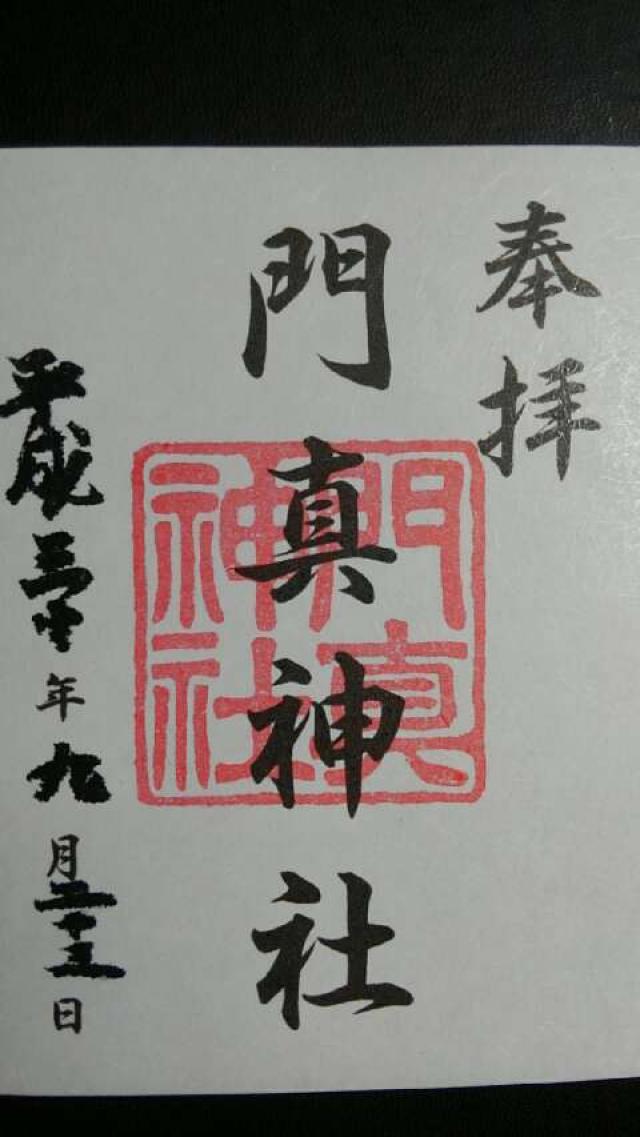 奉拝
門真神社
門真神社
平成三十年九月二十三日